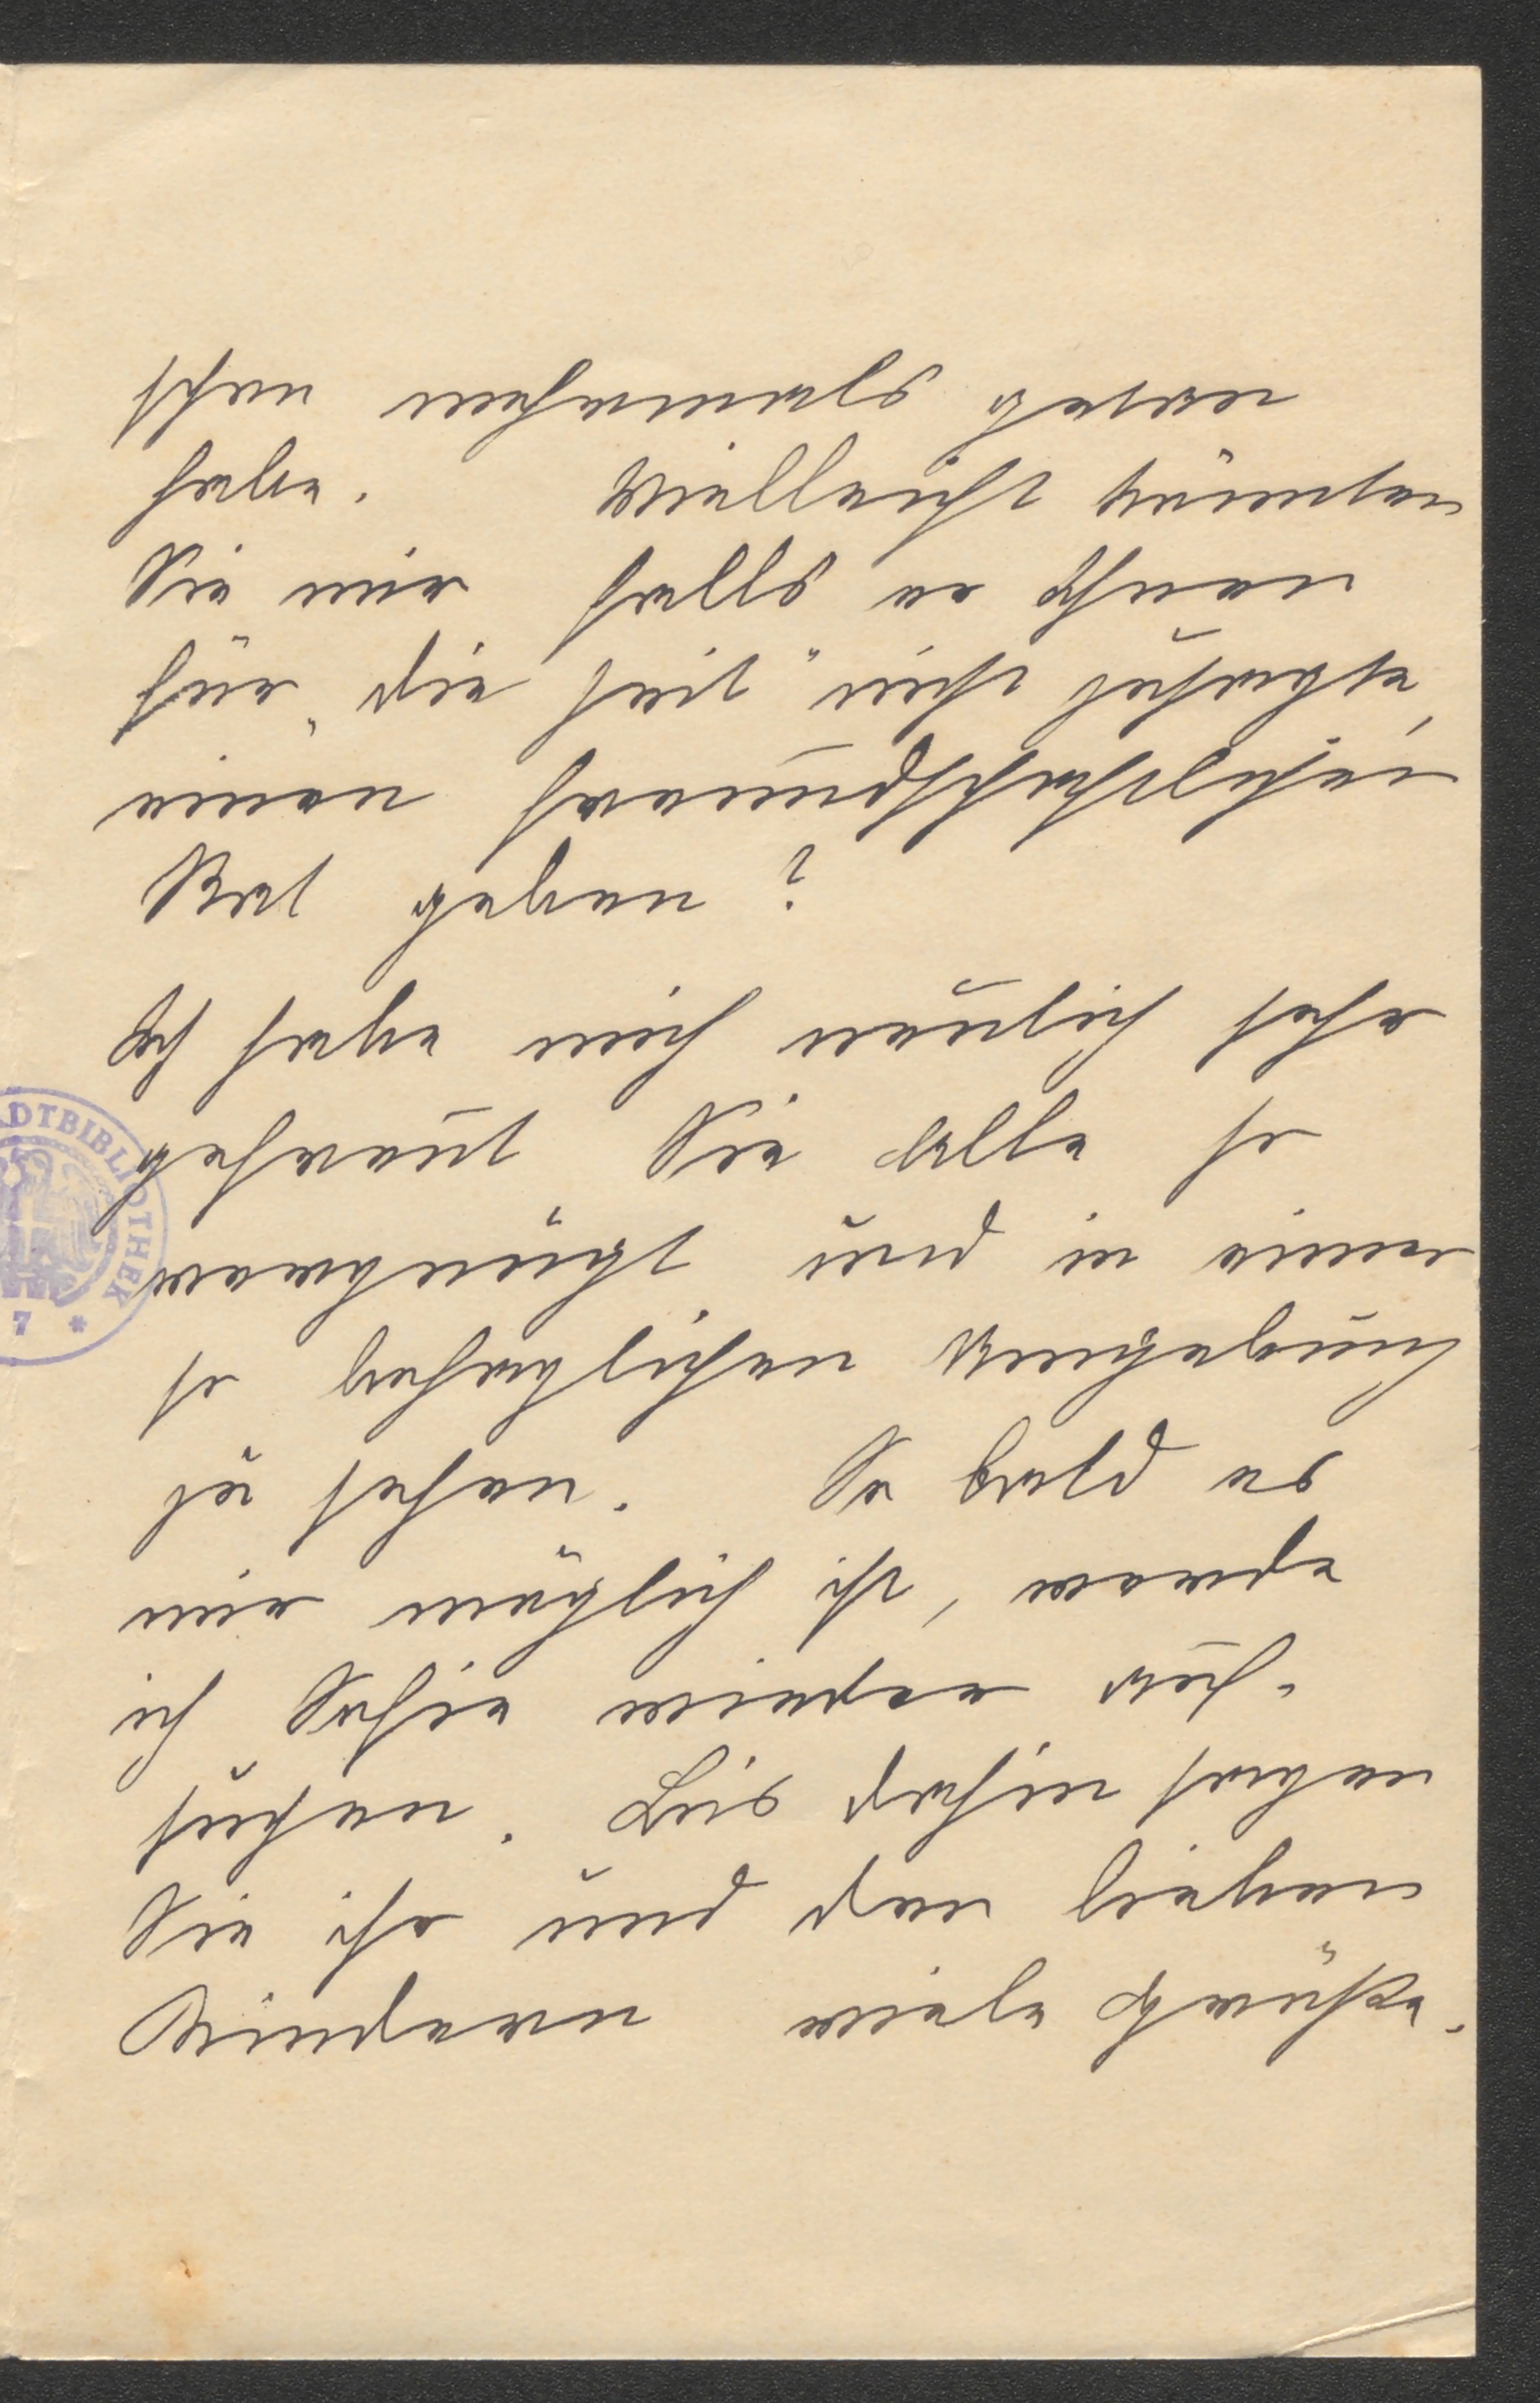 schon mehrmals getan
habe. Vielleicht könnten
Sie mir falls er Ihnen
für „die Zeit" nicht zusagte,
einen freundschaftlichen
Rat geben?
Ich habe mich neulich sehr
gefreut Sie Alle so
vergnügt und in einer
so behaglichen Umgebung
zu sehen. So bald es
mir möglich ist, werde
ich Sophie wieder auf-
suchen. Bis dahin sagen
Sie ihr und den lieben
Kindern viele Grüße.
DTBIBLIOTHEK
7 *